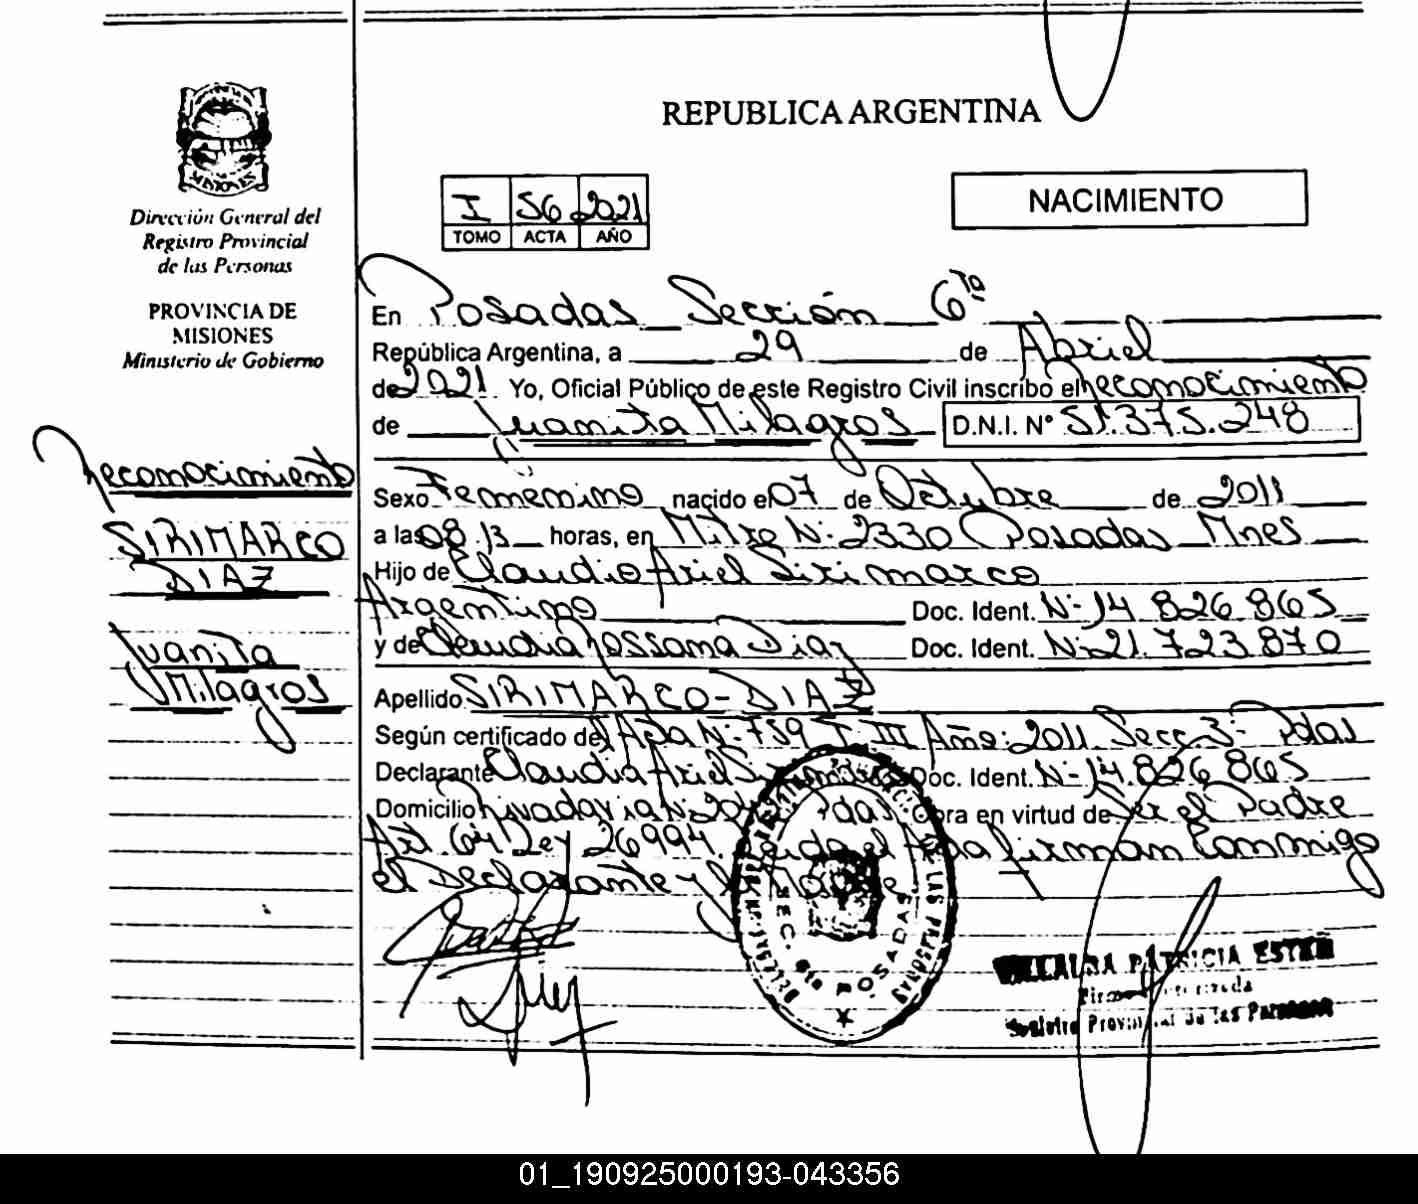 REPUBLICA ARGENTINA
MISIONES
Dirección General del
Registro Provincial
de las Personas
PROVINCIA DE
MISIONES
Ministerio de Gobierno
I 56 2021
TOMO ACTA AÑO
NACIMIENTO
En Posadas Sección 6ta
República Argentina, a 29 de Abriel
de 2021 Yo, Oficial Público de este Registro Civil inscribo el reconocimiento
de Juanita Milagros D.N.I. Nº 51.375.248
Reconocimiento
SIRIMARCO
DIAZ
Juanita
Milagros
Sexo Femenino nacido el 07 de Octubre de 2011
a las 08:13 horas, en Mitre Nº 2330 Posadas Mnes
Hijo de Claudio Ariel Sirimarco
Argentino Doc. Ident. Nº 14.826.865
y de Claudia Rossana Diaz Doc. Ident. Nº 21.723.870
Apellido SIRIMARCO-DIAZ
Según certificado del Acta Nº 759 T III Año: 2011 Secc. 3º Pdas
Declarante Claudio Ariel Doc. Ident. Nº 14.826.865
Domicilio Rivadavia Nº Pdas Obra en virtud de Ser el Padre
Art. 64 Ley 26994. Leida el Acta firman Conmigo
el Declarante y la
SEC. 6ta POSADAS
DE LAS PERSONAS
VILLALBA PATRICIA ESTER
Firma Autorizada
Registro Provincial de las Personas
01_190925000193-043356